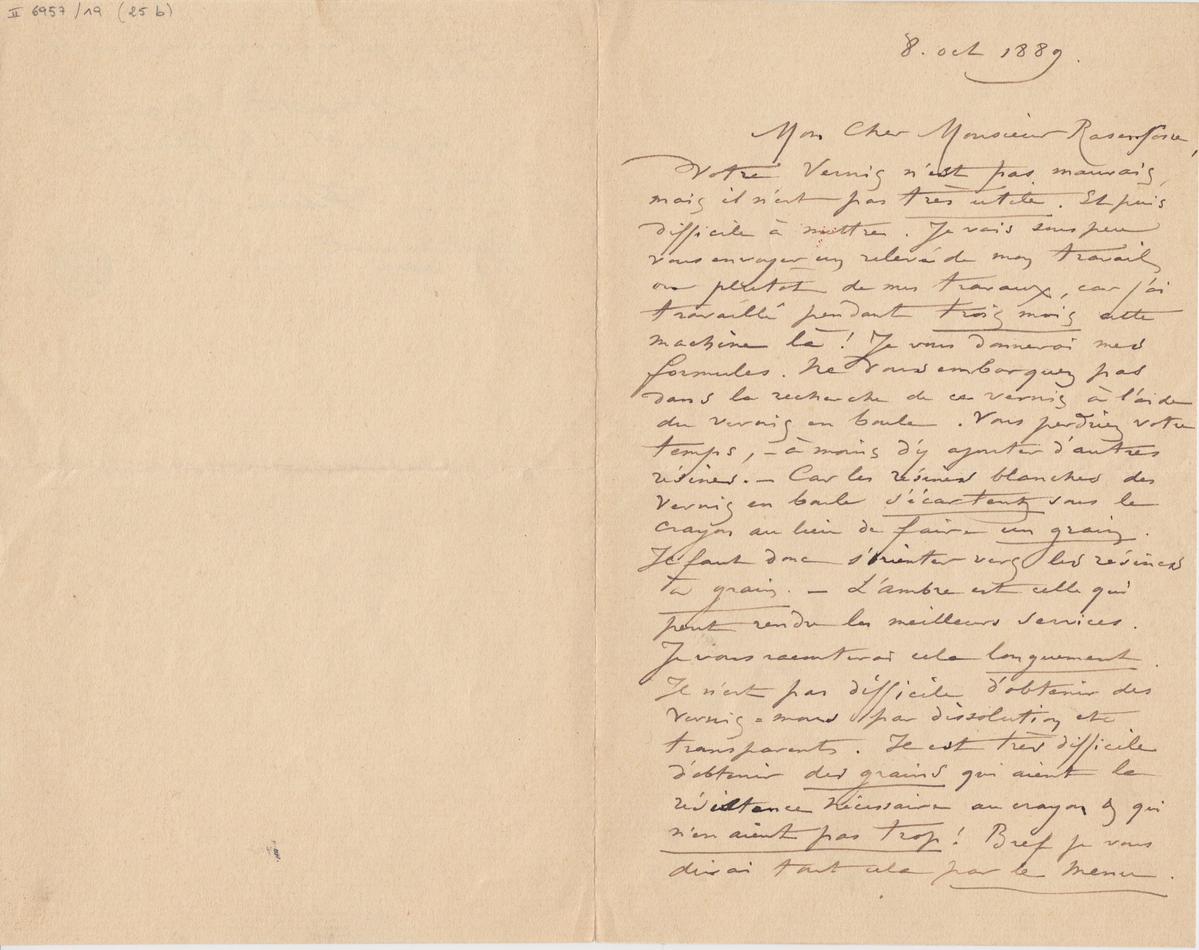 II 6957/19 (25 b)
8. oct 1889.
Mon Cher Monsieur Rassenfosse,
Votre Vernis n'est pas mauvais,
mais il n'est pas très utile. Et puis
difficile à mettre. Je vais sous peu
vous envoyer un relevé de mon travail
ou plutôt de mes travaux, car j'ai
travaillé pendant trois mois cette
machine là! Je vous donnerai mes
formules. Ne vous embarquez pas
dans la recherche de ce vernis à l'aide
du vernis en boule. Vous perdriez votre
temps, – à moins d'y ajouter d'autres
résines. – Car les résines blanches des
vernis en boule s'écartent sous le
crayon au lieu de faire un grain.
Il faut donc s'orienter vers les résines
à grain. – L'ambre est celle qui
peut rendre les meilleurs services.
Je vous raconterai cela longuement.
Il n'est pas difficile d'obtenir des
vernis = mous par dissolution etc
transparents. Il est très difficile
d'obtenir des grains qui aient la
résistance nécessaire au crayon & qui
n'en aient pas trop! Bref je vous
dirai tout cela par le menu.